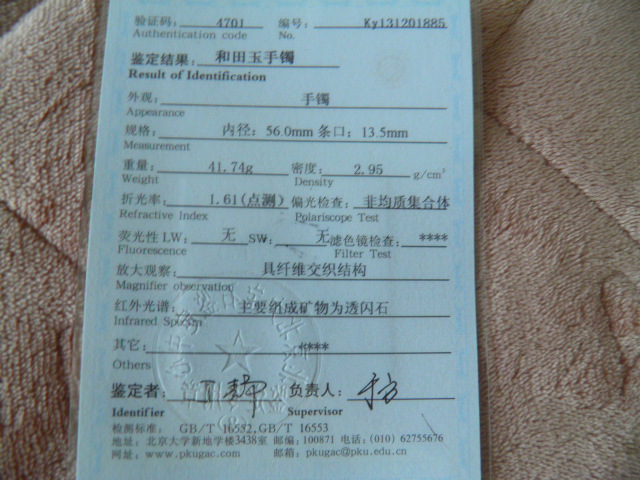 验证码: 4701 编号: Ky131201885
Authentication code No.
鉴定结果: 和田玉手镯
Result of Identification
外观: 手镯
Appearance
规格: 内径: 56.0mm 条口: 13.5mm
Measurement
重量: 41.74g 密度: 2.95 g/cm³
Weight Density
折光率: 1.61(点测) 偏光检查: 非均质集合体
Refractive Index Polariscope Test
荧光性 LW: 无 SW: 无 滤色镜检查: ****
Fluorescence Filter Test
放大观察: 具纤维交织结构
Magnifier observation
红外光谱: 主要组成矿物为透闪石
Infrared Spectra
其它: ****
Others
鉴定者: 负责人:
Identifier Supervisor
检测标准: GB/T 16552,GB/T 16553
地址: 北京大学新地学楼3438室 邮编: 100871 电话: (010) 62755676
网址: www.pkugac.com 邮箱: pkugac@pku.edu.cn